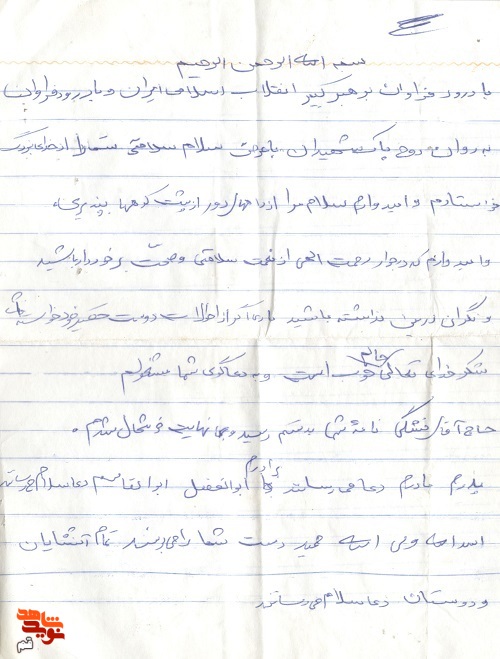 بسم الله الرحمن الرحیم
با درود فراوان برهبر کبیر انقلاب اسلامی ایران و با درود فراوان
به روان روح پاک شهیدان با عرض سلام سلامتی شما را از خدای بزرگ
خواستارم و امیدوارم سلام مرا از راههای دور از پشت کوهها بپذیری،
و امیدوارم که در جوار رحمت الهی از نعمت سلامتی و صحت برخوردار باشید
و نگران در بین نداشته باشید باری اگر از احوالات دوست حقیر خود خواسته باشی
شکر خدای تعالی حالم خوب است و به دعاگوی شما مشغولم
حاج آقای فشنگی نامه شما بدستم رسید و بی نهایت خوشحال شدم.
پدرم مادرم دعا می رسانند برادرم ابوالفضل ابوالقاسم دعا سلام می رساند
اسدالله ولی الله حمید دست شما را می بوسند تمام آشنایان
و دوستان دعا سلام می رسانند
نوید شاهد
قم